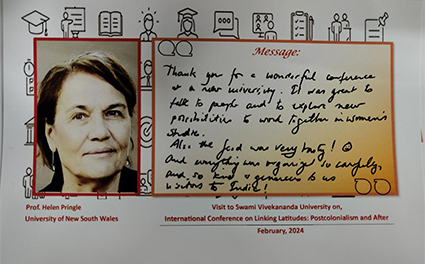 Message:
Thank you for a wonderful conference
at a new university. It was great to
talk to people and to explore new
possibilities to work together in women's
studies.
Also the food was very tasty! ☺
And everything was organized so carefully,
and so kind & generous to us
visitors to India!
Prof. Helen Pringle
University of New South Wales
Visit to Swami Vivekananda University on,
International Conference on Linking Latitudes: Postcolonialism and After
February, 2024